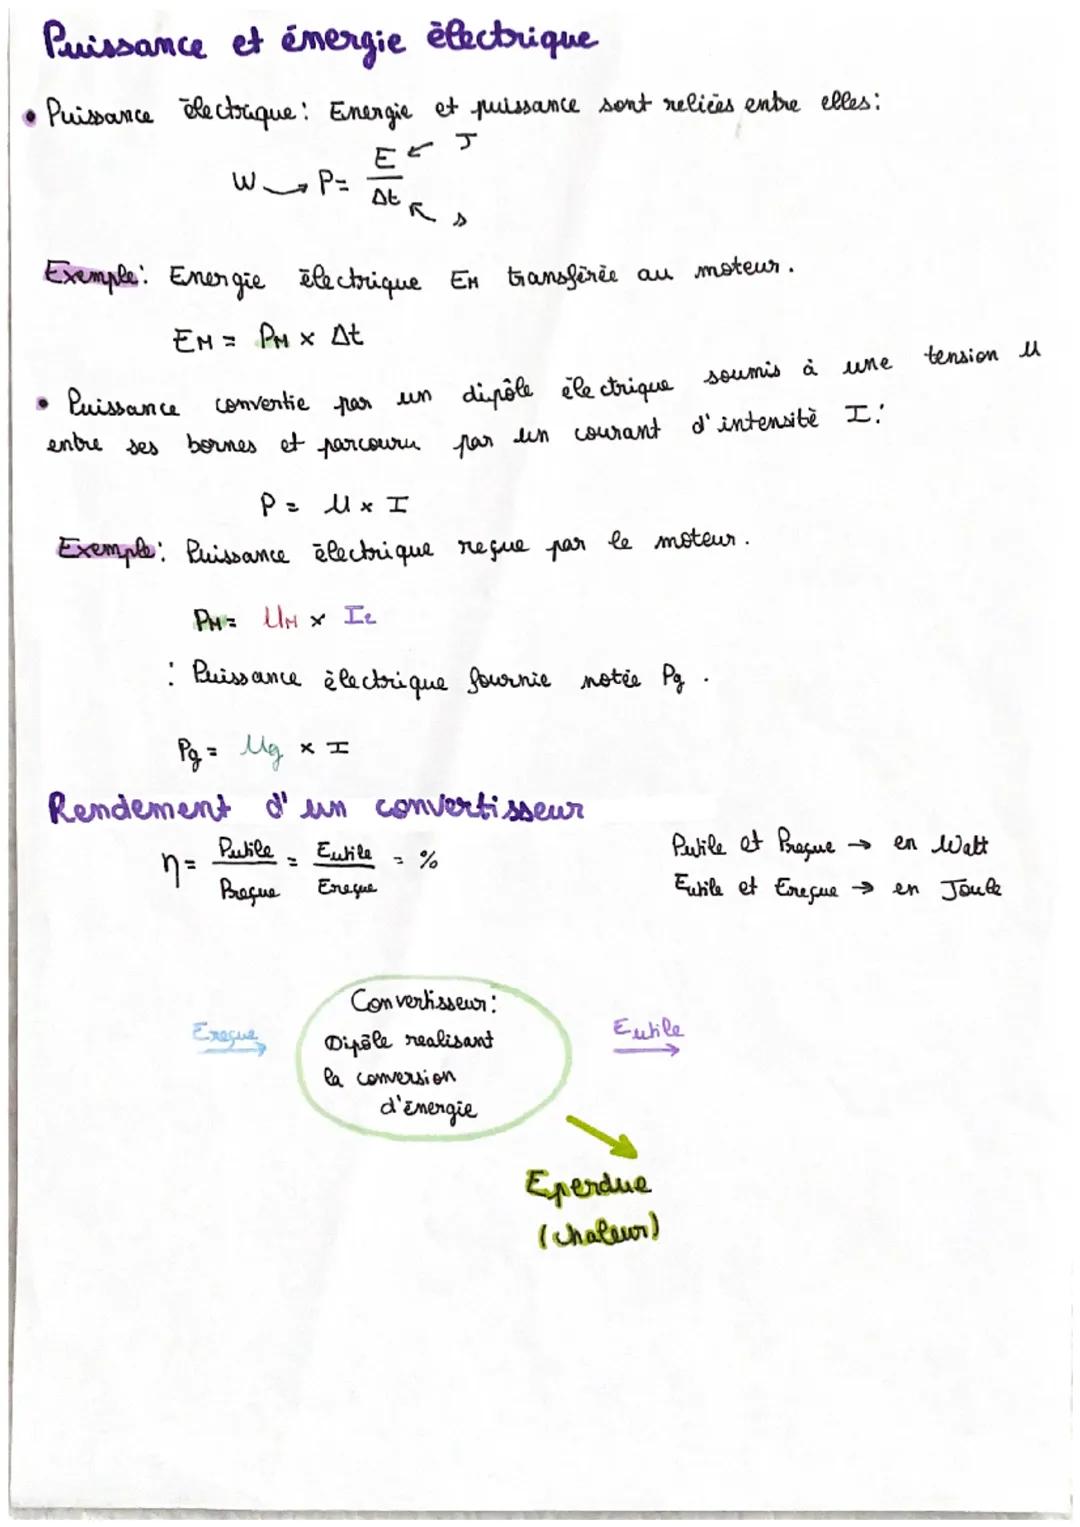 Puissance et énergie électrique
• Puissance électrique : Energie et puissance sont reliées entre elles :
W → P = E / Δt ← J
↖ s
Exemple : Energie électrique EM transférée au moteur.
EM = PM × Δt
• Puissance convertie par un dipôle électrique soumis à une tension U
entre ses bornes et parcouru par un courant d'intensité I :
P = U × I
Exemple : Puissance électrique reçue par le moteur.
PM = UM × I2
: Puissance électrique fournie notée Pg.
Pg = Ug × I
Rendement d'un convertisseur
η = Putile / Preçue = Eutile / Ereçue = %
Putile et Preçue → en Watt
Eutile et Ereçue → en Joule
Convertisseur :
Ereçue →
Dipôle realisant
la conversion
d'énergie
Eutile →
Eperdue
(chaleur)